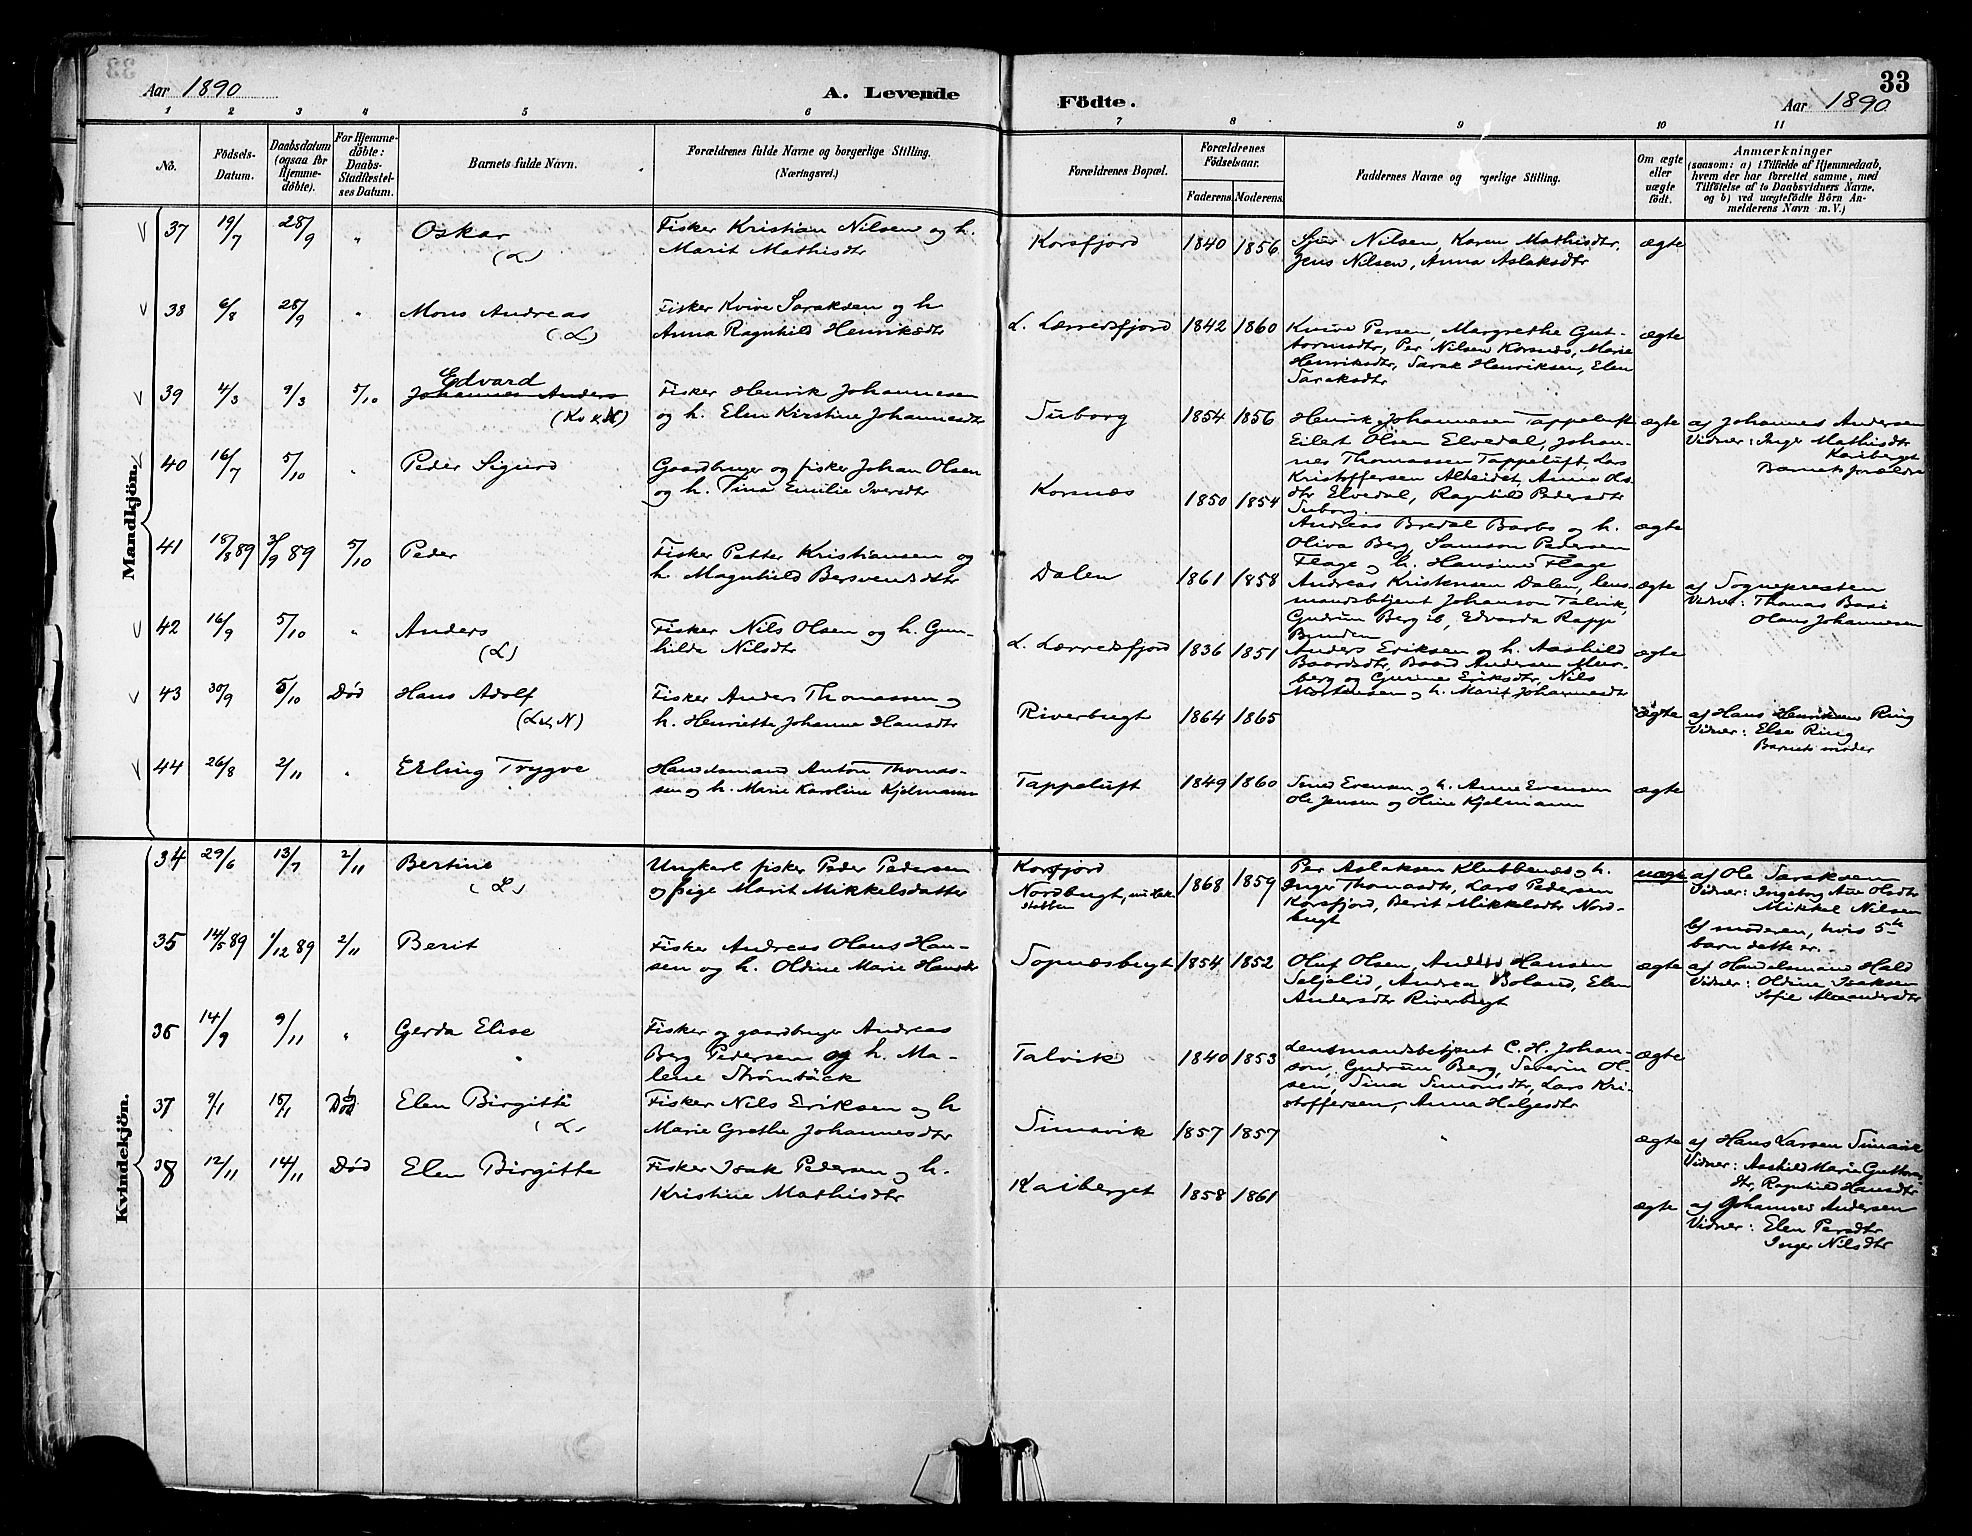 33
Aar 1890
A. Levende
Födte.
Aar 1890
1 2 3 4 5 6 7 8 9 10 11
No.
Födsels-Datum.
Daabsdatum (ogsaa for Hjemmedöbte).
For Hjemmedöbte: Daabs-Stadfæstelses Datum.
Barnets fulde Navn.
Forældrenes fulde Navne og borgerlige Stilling.
(Næringsvei.)
Forældrenes Bopæl.
Forældrenes Födselsaar.
Faderens Moderens
Faddernes Navne og borgerlige Stilling.
Om ægte eller uægte födt.
Anmærkninger
(saasom: a) i Tilfælde af Hjemmedaab,
hvem der har forrettet samme, med
Tilföielse af to Daabsvidners Navne.
og b) ved uægtefödte Börn An-
melderens Navn m. V.)
Mandkjön.
37 19/7 28/9 " Oskar (L)
Fisker Kristian Nilsen og h.
Marit Mathisdtr
Korsfjord 1840 1856
Sjur Nilsen, Karen Mathisdtr,
Jens Nilsen, Anna Aslaksdtr
ægte
38 6/8 28/9 " Mons Andreas (L)
Fisker Kvive Saraksen og h
Anna Ragnhild Henriksdtr
L. Lærredsfjord 1842 1860
Kvive Persen, Margrethe Gut-
tormsdtr, Per Nilsen Korsnes, Marie
Henriksdtr, Sarak Henriksen, Elen
Saraksdtr
ægte
39 4/3 9/3 5/10 Edvard
Johannes Anders
(Kv & N)
Fisker Henrik Johannesen
og h. Elen Kirstine Johannesdtr
Suborg 1854 1856
Henrik Johannesen Tappeluft
Eilert Olsen Elvedal, Johan-
nes Thomassen Tappeluft, Lars
Kristoffersen Alteidet, Anna Ols-
dtr Elvedal, Ragnhild Pedersdtr
Suborg.
ægte
af Johannes Andersen
Vidner: Inger Mathisdtr
Kaiberget
Barnets forældre
40 16/7 5/10 " Peder Sigurd
Gaardbruger og fisker Johan Olsen
og h. Tina Emilie Iversdtr
Korsnæs 1850 1854
Andreas Bredal Barbo og h.
Oliva Berg, Samson Pedersen
Flage og h. Hansine Flage
ægte
41 18/8 89 3/9 89 5/10 Peder
Fisker Petter Kristiansen og
h. Magnhild Bersvendsdtr
Dalen 1861 1858
Andreas Kristensen Dalen, lens-
mandsbetjent Johanson Talvik,
Gudrun Berg ib, Edvarda Rapp
ægte
af Sognepresten
Vidner: Thomas Basi
Olaus Johannesen
42 16/9 5/10 " Anders (L)
Fisker Nils Olsen og h. Gun-
hilda Nilsdtr
L. Lærredsfjord 1836 1851
Anders Eriksen og h. Aashild
Baardsdtr, Baard Andersen Mur-
berg og Gunine Eriksdtr, Nils
Mortensen og h. Marit Johannesdtr
ægte
43 30/9 5/10 Død Hans Adolf (L & N)
Fisker Anders Thomassen og
h. Henriette Johanne Hansdtr
Riverbugt 1864 1865
ægte
af Hans Henriksen Ring
Vidner: Else Ring
Barnets moder
44 26/8 2/11 " Erling Trygve
Handelsmand Anton Thomas-
sen og h. Marie Karoline Kjelmann
Tappeluft 1849 1860
Sens Evensen og h. Anne Evensen
Ole Jensen og Oline Kjelmann
ægte
Kvindekjön.
34 29/6 13/7 2/11 Bertine (L)
Ungkarl fisker Peder Pedersen
og pige Marit Mikkelsdatter
Korsfjord
Nordbugt,
1868 1859
Per Aslaksen Klubbenes og h.
Inger Thomasdtr, Lars Pedersen
Korsfjord, Berit Mikkelsdtr Nord-
bugt
uægte
af Ole Saraksen
Vidner: Ingeborg Ane Olsdtr
Mikkel Nilsen
b) moderen, hvis 5te
barn dette er.
35 14/5 89 1/12 89 2/11 Berit
Fisker Andreas Olaus Han-
sen og h. Oldine Marie Hansdtr
Sopnæsbugt 1854 1852
Oluf Olsen, Anders Hansen
Seljelid, Andrea Boland, Elen
Andersdtr Riverbugt
ægte
af Handelsmand Hald
Vidner: Oldine Isaksen
Sofie Alexandersdtr
36 14/9 9/11 " Gerda Elise
Fisker og gaardbruger Andreas
Berg Pedersen og h. Ma-
lene Strømbäck
Talvik 1840 1853
Lensmandsbetjent C. H. Johan-
son, Gudrun Berg, Severin Ol-
sen, Sina Simonsdtr, Lars Kri-
stoffersen, Anna Helgesdtr
ægte
37 9/1 15/1 Død Elen Birgitte (L)
Fisker Nils Eriksen og h
Marie Grethe Johannesdtr
Simavik 1857 1857 "
ægte
af Hans Larsen Simavik
Vidner: Aashild Marie Guttorms-
dtr, Ragnhild Hansdtr
38 12/11 14/11 Død Elen Birgitte
Fisker Isak Pedersen og h.
Kristine Mathisdtr
Kaiberget 1858 1861
ægte
af Johannes Andersen
Vidner: Elen Persdtr
Inger Nilsdtr